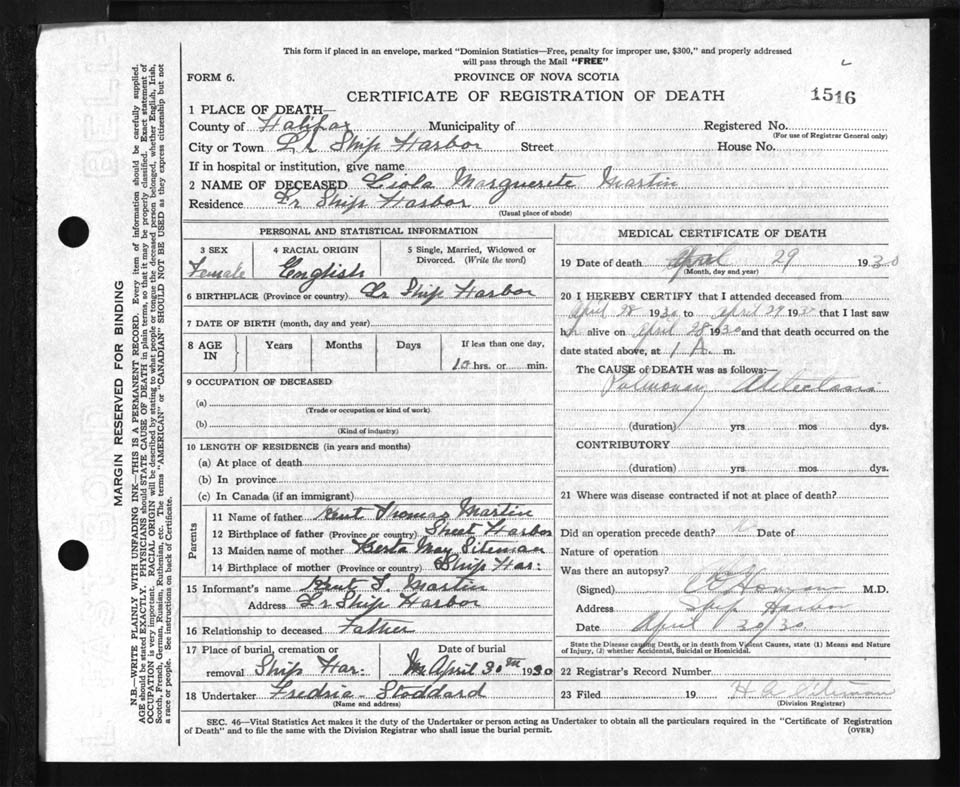 This form if placed in an envelope, marked "Dominion Statistics—Free, penalty for improper use, $300," and properly addressed
will pass through the Mail "FREE"
FORM 6.
PROVINCE OF NOVA SCOTIA
CERTIFICATE OF REGISTRATION OF DEATH
1516
1 PLACE OF DEATH—
County of Halifax Municipality of Registered No.
(For use of Registrar General only)
City or Town Lr Ship Harbor Street House No.
If in hospital or institution, give name
2 NAME OF DECEASED Leola Marguerete Martin
Residence Lr Ship Harbor
(Usual place of abode)
PERSONAL AND STATISTICAL INFORMATION
3 SEX 4 RACIAL ORIGIN 5 Single, Married, Widowed or
Divorced. (Write the word)
Female English
6 BIRTHPLACE (Province or country) Lr Ship Harbor
7 DATE OF BIRTH (month, day and year)
8 AGE IN Years Months Days If less than one day,
10 hrs. or min.
9 OCCUPATION OF DECEASED
(a)
(Trade or occupation or kind of work)
(b)
(Kind of industry)
10 LENGTH OF RESIDENCE (in years and months)
(a) At place of death
(b) In province
(c) In Canada (if an immigrant)
Parents
11 Name of father Kent Thomas Martin
12 Birthplace of father (Province or country) Sheet Harbor
13 Maiden name of mother Berta May Siteman
14 Birthplace of mother (Province or country) Ship Har:
15 Informant's name Kent T. Martin
Address Lr Ship Harbor
16 Relationship to deceased Father
17 Place of burial, cremation or
removal Ship Har. Date of burial
April 30th 1930
18 Undertaker Fredric Stoddard
(Name and address)
MEDICAL CERTIFICATE OF DEATH
19 Date of death April 29 1930
(Month, day and year)
20 I HEREBY CERTIFY that I attended deceased from
April 28 1930 to April 29 1930 that I last saw
h alive on April 28 1930 and that death occurred on
date stated above, at 1 A. m.
The CAUSE of DEATH was as follows:
Pulmonary Atelectasis
(duration) yrs mos dys.
CONTRIBUTORY
(duration) yrs mos dys.
21 Where was disease contracted if not at place of death?
Did an operation precede death? Date of
Nature of operation
Was there an autopsy? no
(Signed) M.D.
Address Ship Harbor
Date April 30/30
State the Disease causing Death, or in death from Violent Causes, state (1) Means and Nature
of Injury, (2) whether Accidental, Suicidal or Homicidal.
22 Registrar's Record Number
23 Filed 19 H A Siteman
(Division Registrar)
SEC. 46—Vital Statistics Act makes it the duty of the Undertaker or person acting as Undertaker to obtain all the particulars required in the "Certificate of Registration
of Death" and to file the same with the Division Registrar who shall issue the burial permit.
(OVER)
MARGIN RESERVED FOR BINDING
N.B.—WRITE PLAINLY WITH UNFADING INK—THIS IS A PERMANENT RECORD. Every item of information should be carefully supplied.
AGE should be stated EXACTLY. PHYSICIANS should STATE CAUSE OF DEATH in plain terms, so that it may be properly classified. Exact statement of
OCCUPATION is very important. RACIAL ORIGIN will be described by stating to what people or tongue the deceased person belonged, whether English, Irish,
Scotch, French, German, Russian, Ruthenian, etc. The terms "AMERICAN" or "CANADIAN" SHOULD NOT BE USED as they express citizenship but not
a race or people. See instructions on back of Certificate.